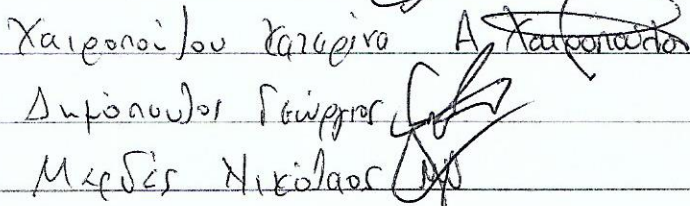 Χαιροπούλου Κατερίνα Α Χαιροπούλου
Δημόπουλος Γεώργιος
Μερδές Νικόλαος